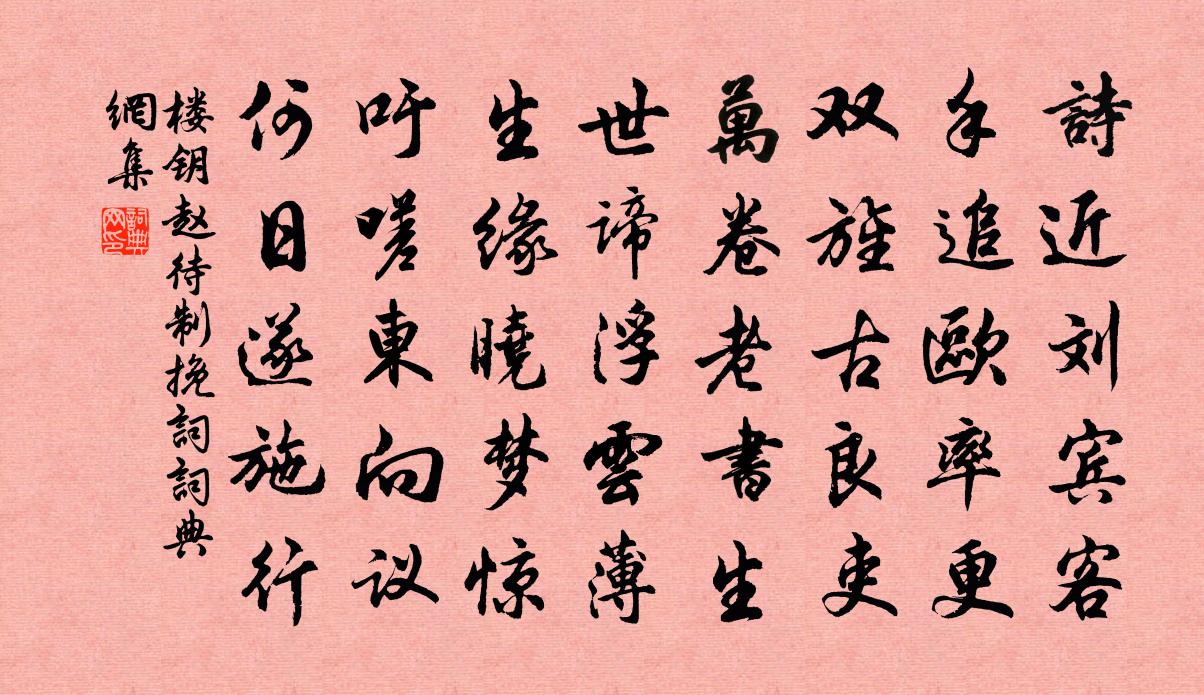 詩近刘宾客
手追歐率更
双旌古良吏
萬卷老書生
世谛浮雲薄
生缘曉梦惊
吁嗟東向议
何日遂施行
楼钥赵待制挽詞詞典
網集
詞典
网印